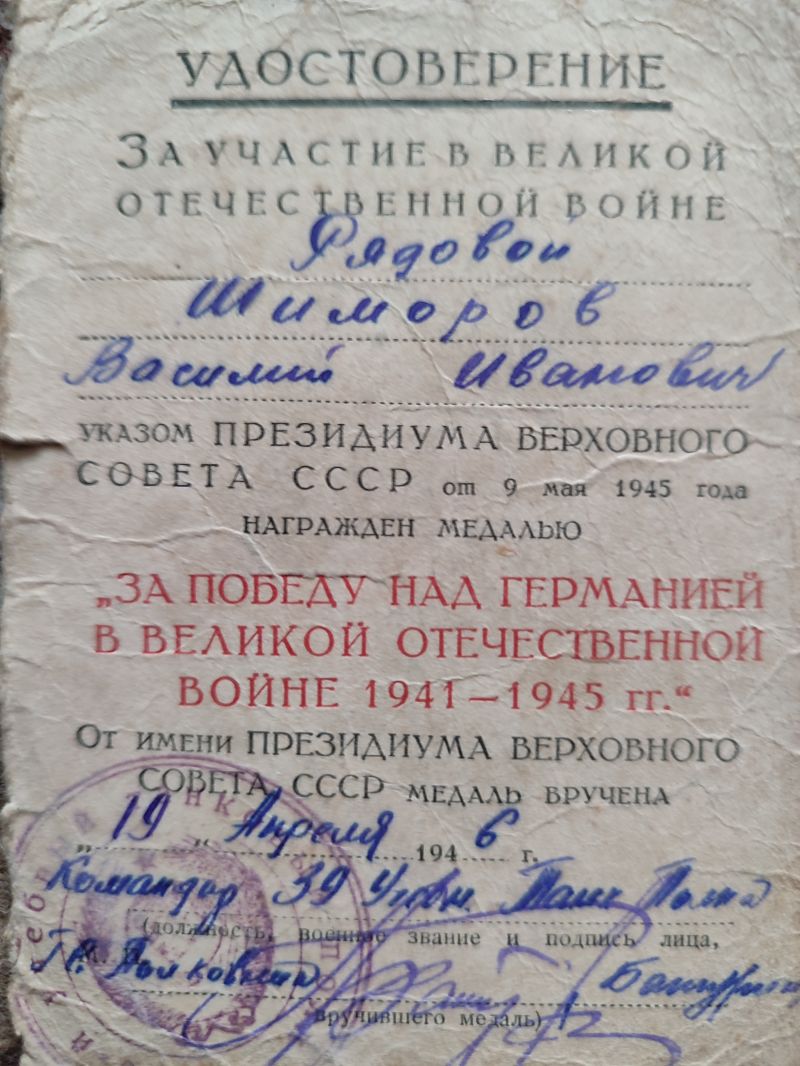 УДОСТОВЕРЕНИЕ
ЗА УЧАСТИЕ В ВЕЛИКОЙ
ОТЕЧЕСТВЕННОЙ ВОЙНЕ
Рядовой
Шиморов
Василий Иванович
УКАЗОМ ПРЕЗИДИУМА ВЕРХОВНОГО
СОВЕТА СССР от 9 мая 1945 года
НАГРАЖДЕН МЕДАЛЬЮ
„ЗА ПОБЕДУ НАД ГЕРМАНИЕЙ
В ВЕЛИКОЙ ОТЕЧЕСТВЕННОЙ
ВОЙНЕ 1941—1945 гг.“
ОТ ИМЕНИ ПРЕЗИДИУМА ВЕРХОВНОГО
СОВЕТА СССР МЕДАЛЬ ВРУЧЕНА
„19„ Апреля 1946 г.
Командир 39 Танк Полка
(должность, военное звание и подпись лица,
вручившего медаль)